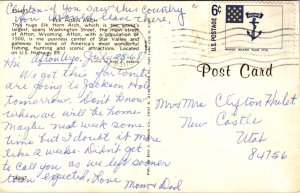 Caution - If you say this country
you want a place there.
ELK HORN ARCH
This huge Elk Horn Arch, which is the world's
largest, spans Washington Street, the main street
of Afton, Wyoming. Afton, with a population of
1500, is in the center of Star Valley and
gateway to some of America's most wonderful
fishing, hunting and scenic attractions. Located
on U.S. Highway 89.
6¢
U.S. POSTAGE
Afton Wyo. July
Hi
We got this far tonite
are going to Jackson Hole
tomorrow. Don't know
when we will be home
Maybe next week some
time but I doubt it more
like 2 weeks. Didn't get
to call you as we left sooner
than expected, Love Mom & Dad
Post Card
Mr & Mrs Clayton Hulet
New Castle
Utah
84756